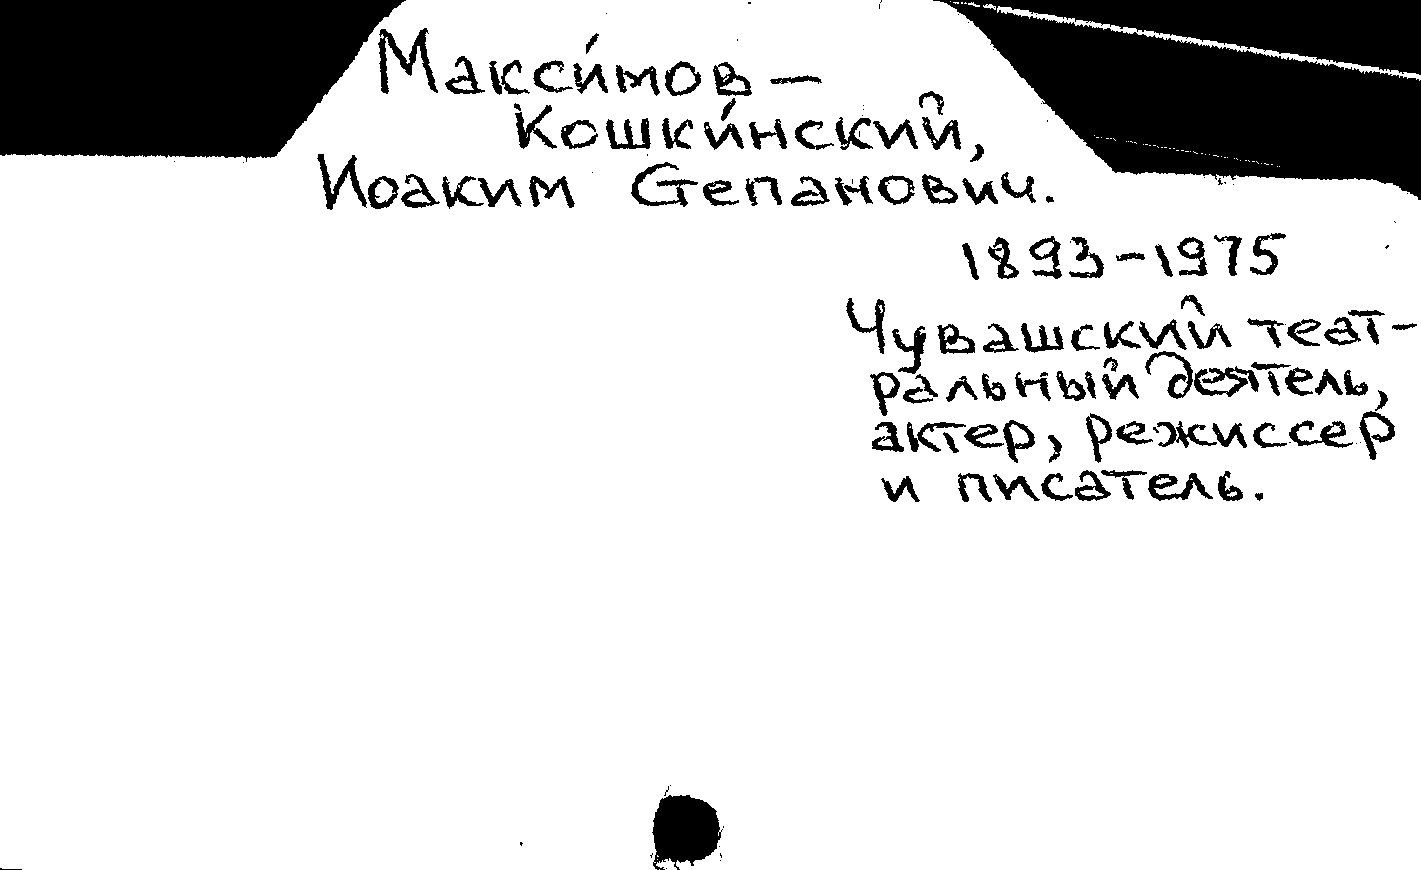 Макси́мов –
Кошки́нский,
Иоаким Степанович.
1893–1975
Чувашский теат-
ральный деятель,
актер, режиссер
и писатель.